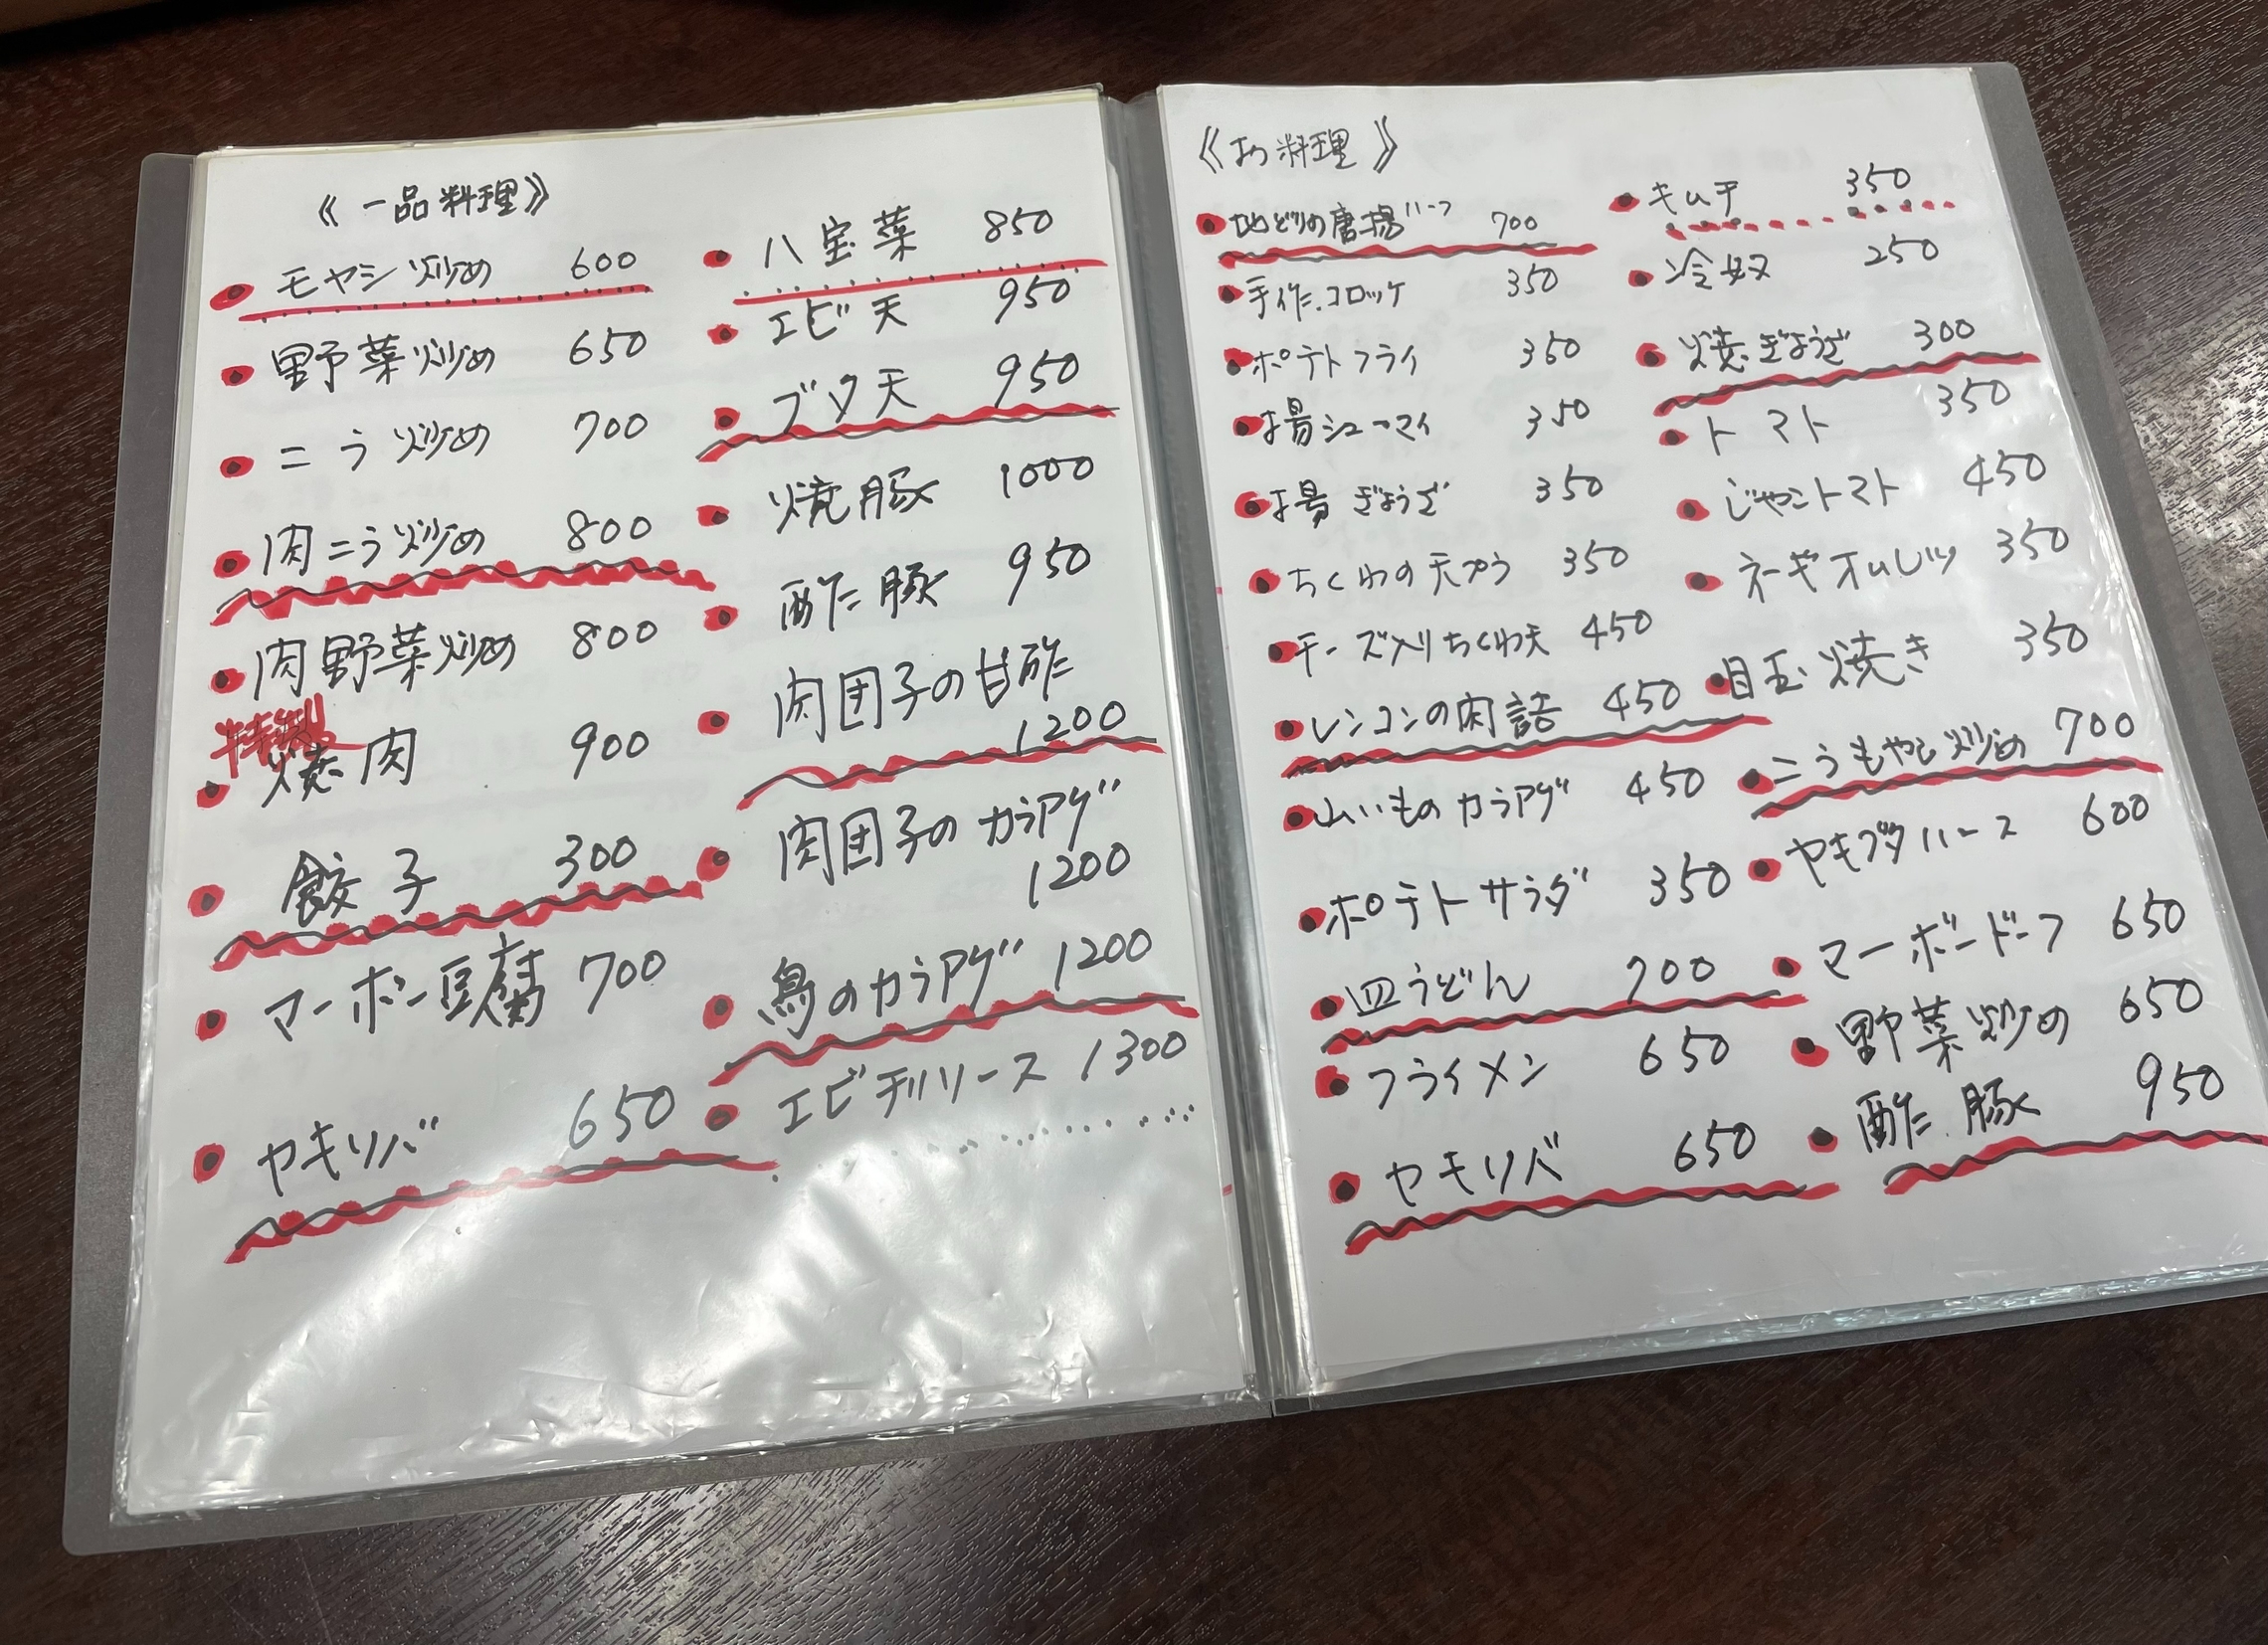 《一品料理》
モヤシ炒め 600
野菜炒め 650
ニラ炒め 700
肉ニラ炒め 800
肉野菜炒め 800
特製
焼肉 900
餃子 300
マーボー豆腐 700
ヤキソバ 650
八宝菜 850
エビ天 950
ブタ天 950
焼豚 1000
酢豚 950
肉団子の甘酢
1200
肉団子のカラアゲ
1200
鳥のカラアゲ 1200
エビチリソース 1300
《お料理》
地どりの唐揚ハーフ 700
手作.コロッケ 350
ポテトフライ 350
揚シューマイ 350
揚ぎょうざ 350
ちくわの天プラ 350
チーズ入りちくわ天 450
レンコンの肉詰 450
山いものカラアゲ 450
ポテトサラダ 350
皿うどん 700
フライメン 650
ヤキソバ 650
キムチ 350
冷奴 250
焼ぎょうざ 300
トマト 350
じゃこトマト 450
ネギオムレツ 350
目玉焼き 350
ニラもやし炒め 700
ヤキブタハース 600
マーボードーフ 650
野菜炒め 650
酢豚 950